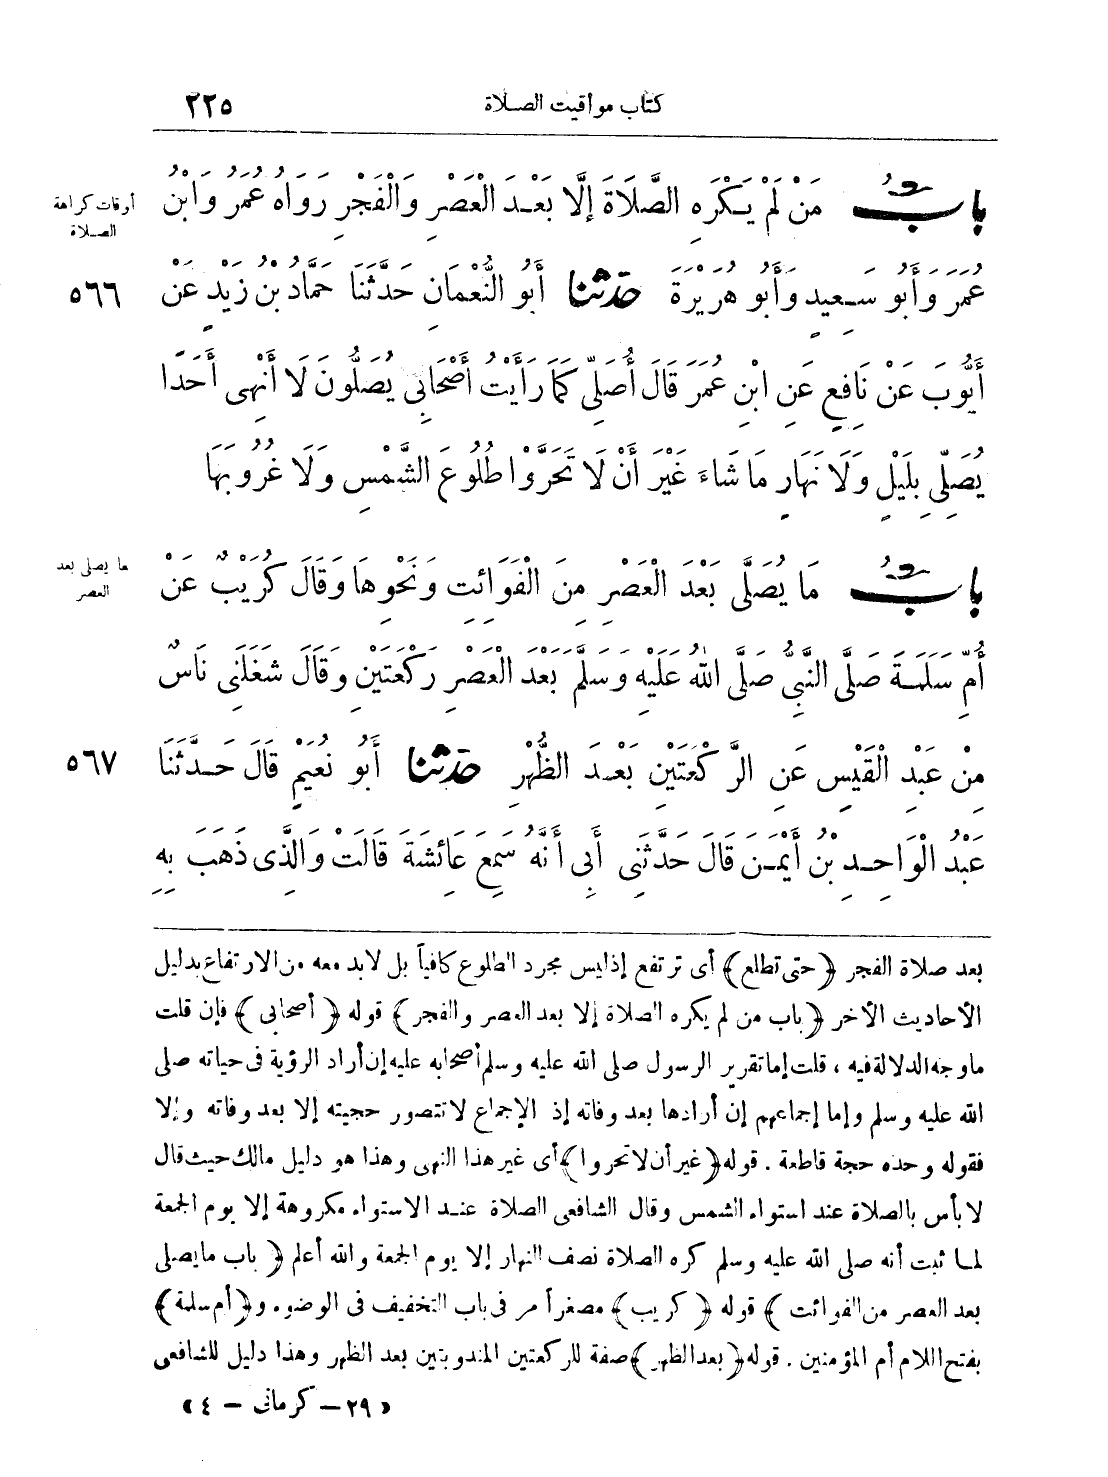 كتاب مواقيت الصلاة ٢٢٥
بابُ مَنْ لَمْ يَكْرَهِ الصَّلَاةَ إِلَّا بَعْدَ الْعَصْرِ وَالْفَجْرِ رَوَاهُ عُمَرُ وَابْنُ
أوقات كراهة
الصلاة
عُمَرَ وَأَبُو سَعِيدٍ وَأَبُو هُرَيْرَةَ حدثنا أَبُو النُّعْمَانِ حَدَّثَنَا حَمَّادُ بْنُ زَيْدٍ عَنْ ٥٦٦
أَيُّوبَ عَنْ نَافِعٍ عَنِ ابْنِ عُمَرَ قَالَ أُصَلِّي كَمَا رَأَيْتُ أَصْحَابِي يُصَلُّونَ لَا أَنْهَى أَحَدًا
يُصَلِّي بِلَيْلٍ وَلَا نَهَارٍ مَا شَاءَ غَيْرَ أَنْ لَا تَحَرَّوْا طُلُوعَ الشَّمْسِ وَلَا غُرُوبَهَا
بابُ مَا يُصَلَّى بَعْدَ الْعَصْرِ مِنَ الْفَوَائِتِ وَنَحْوِهَا وَقَالَ كُرَيْبٌ عَنْ
ما يصلى بعد
العصر
أُمِّ سَلَمَةَ صَلَّى النَّبِيُّ صَلَّى اللهُ عَلَيْهِ وَسَلَّمَ بَعْدَ الْعَصْرِ رَكْعَتَيْنِ وَقَالَ شَغَلَنِي نَاسٌ
مِنْ عَبْدِ الْقَيْسِ عَنِ الرَّكْعَتَيْنِ بَعْدَ الظُّهْرِ حدثنا أَبُو نُعَيْمٍ قَالَ حَدَّثَنَا ٥٦٧
عَبْدُ الْوَاحِدِ بْنُ أَيْمَنَ قَالَ حَدَّثَنِي أَبِي أَنَّهُ سَمِعَ عَائِشَةَ قَالَتْ وَالَّذِي ذَهَبَ بِهِ
بعد صلاة الفجر ﴿حتى تطلع﴾ أى ترتفع إذ ليس مجرد الطلوع كافياً بل لابد معه من الارتفاع بدليل
الأحاديث الأخر ﴿باب من لم يكره الصلاة إلا بعد العصر والفجر﴾ قوله ﴿أصحابى﴾ فإن قلت
ما وجه الدلالة فيه ، قلت إما تقرير الرسول صلى الله عليه وسلم أصحابه عليه إن أراد الرؤية فى حياته صلى
الله عليه وسلم وإما إجماعهم إن أرادها بعد وفاته إذ الإجماع لا تتصور حجيته إلا بعد وفاته وإلا
فقوله وحده حجة قاطعة . قوله ﴿غير أن لا تحروا﴾ أى غير هذا النهى وهذا هو دليل مالك حيث قال
لا بأس بالصلاة عند استواء الشمس وقال الشافعى الصلاة عند الاستواء مكروهة إلا يوم الجمعة
لما ثبت أنه صلى الله عليه وسلم كره الصلاة نصف النهار إلا يوم الجمعة والله أعلم ﴿باب ما يصلى
بعد العصر من الفوائت﴾ قوله ﴿كريب﴾ مصغراً مر فى باب التخفيف فى الوضوء و﴿أم سلمة﴾
بفتح اللام أم المؤمنين . قوله ﴿بعد الظهر﴾ صفة للركعتين المندوبتين بعد الظهر وهذا دليل للشافعى
« ٢٩ – كرمانى – ٤ »